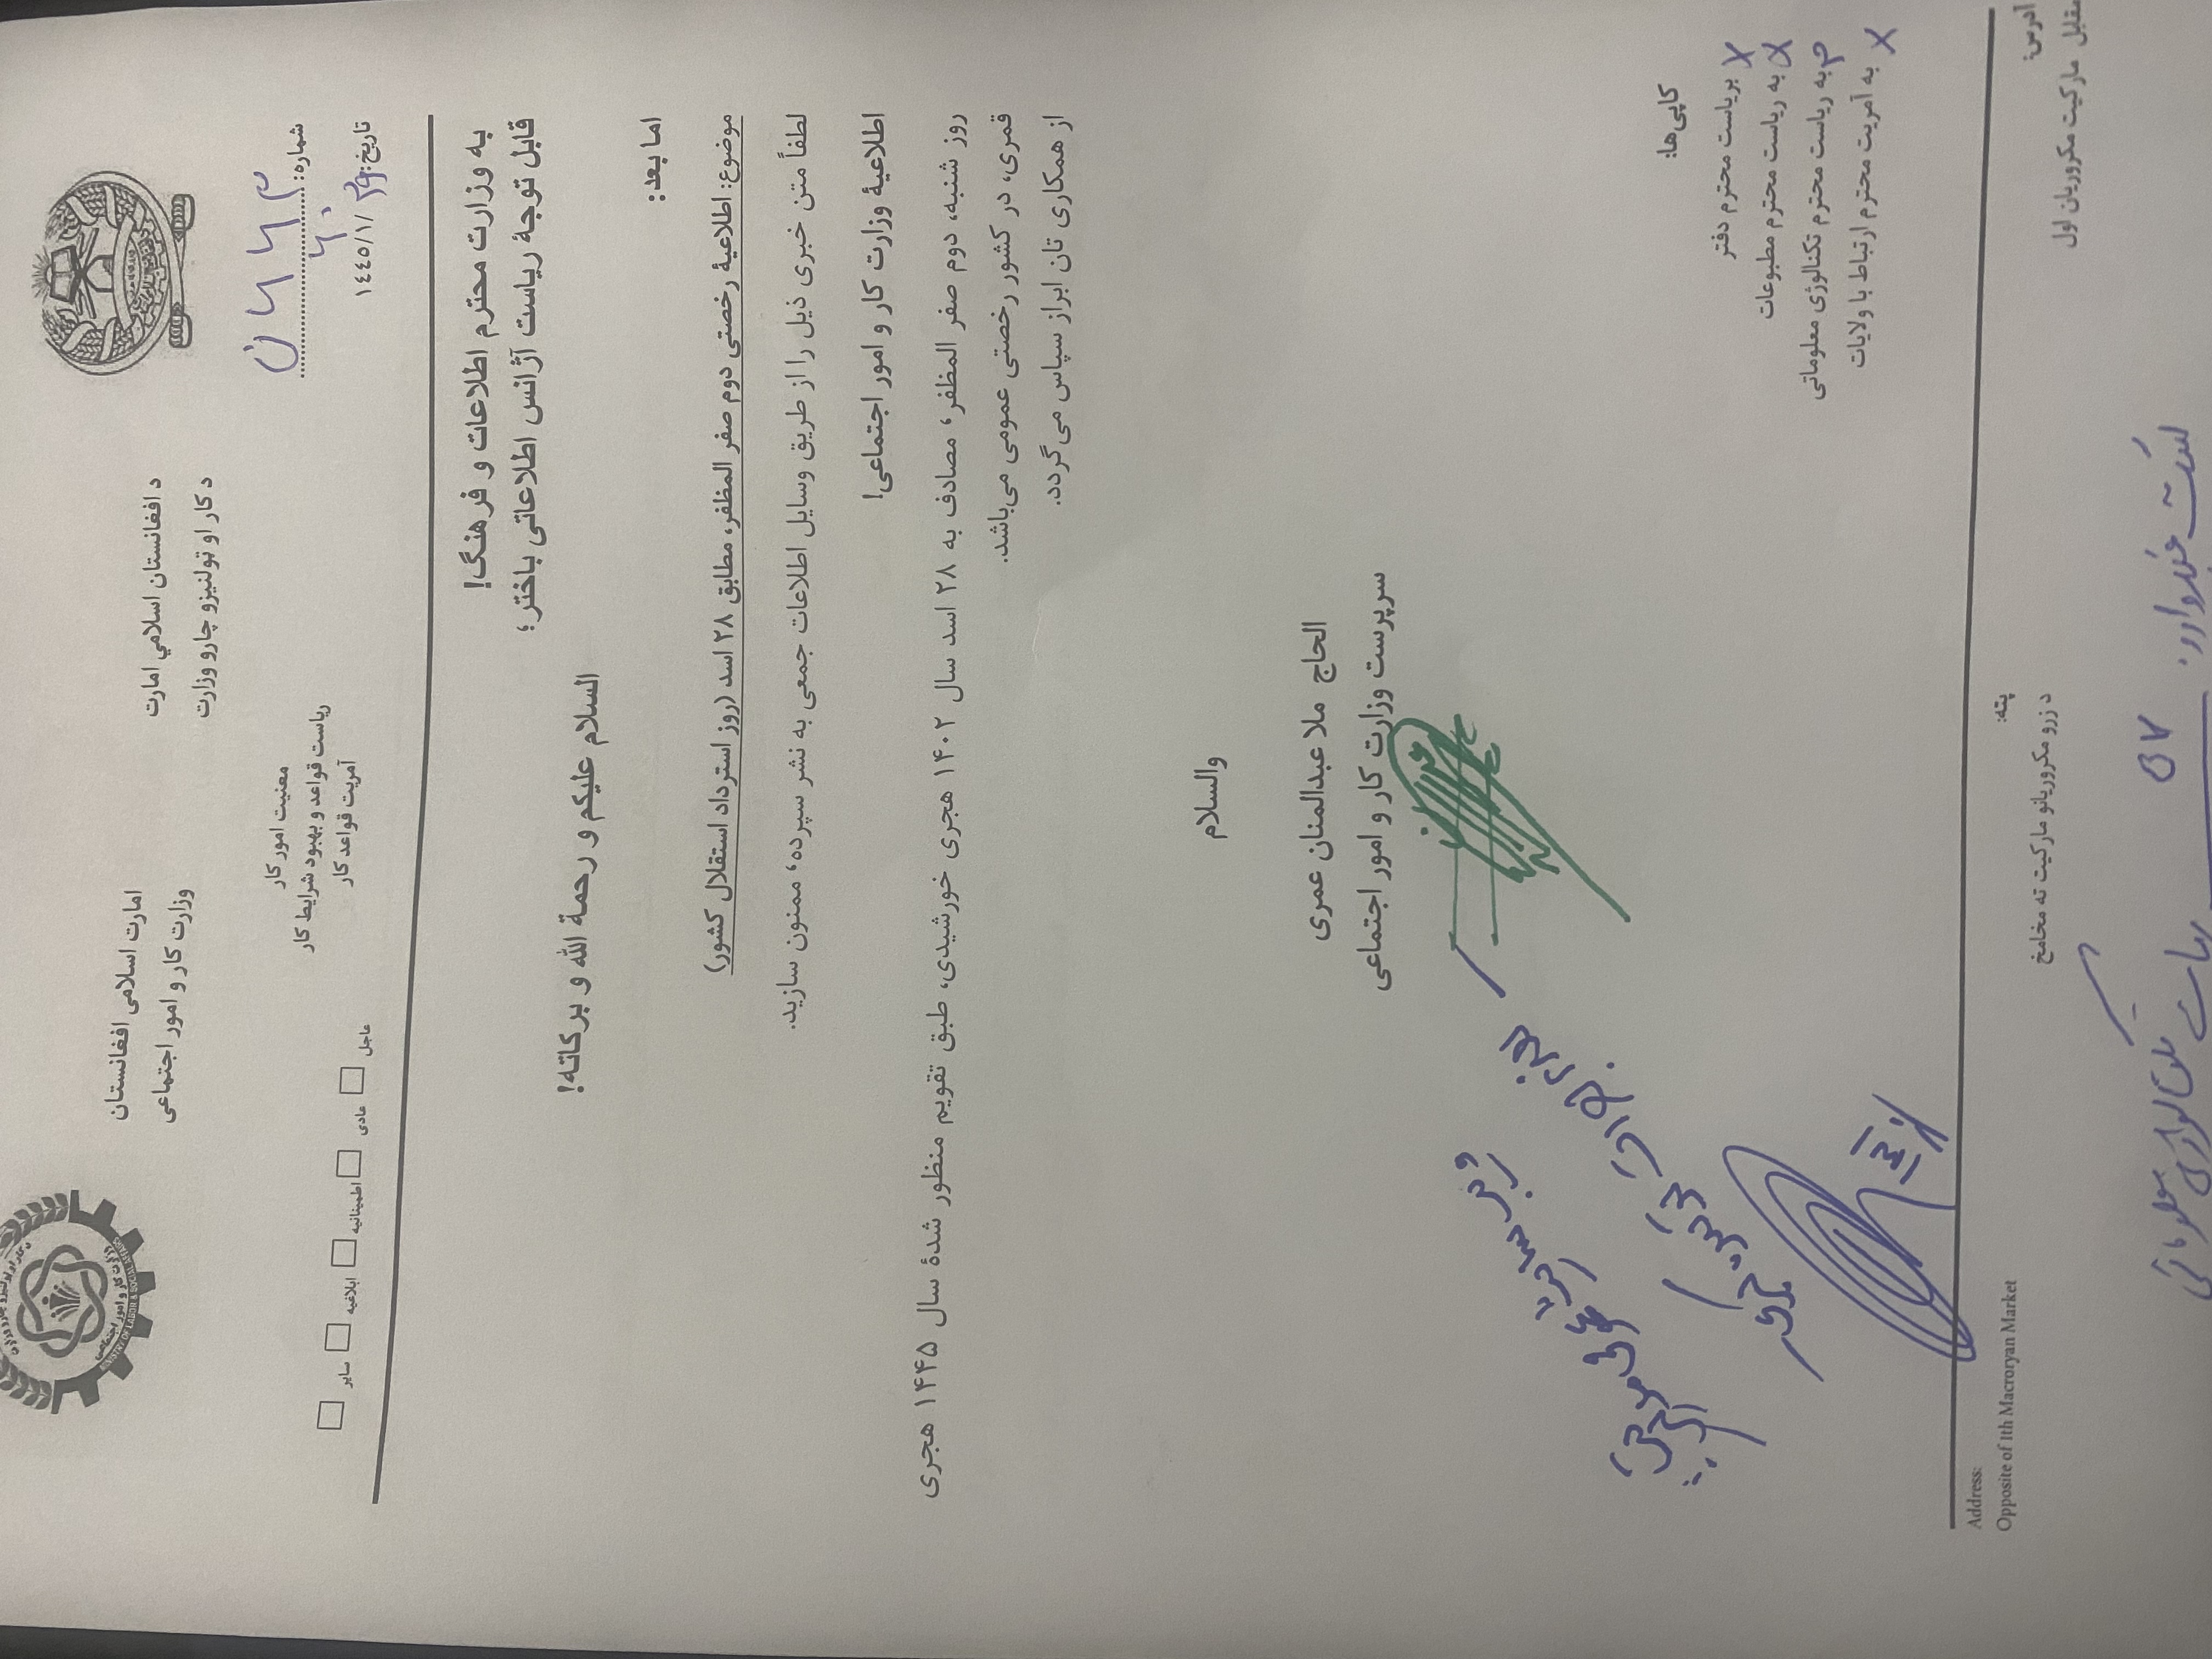 د افغانستان اسلامي امارت
د کار او ټولنیزو چارو وزارت
امارت اسلامی افغانستان
وزارت کار و امور اجتماعی
معنیت امور کار
ریاست قواعد و بهبود شرایط کار
آمریت قواعد کار
شماره:
تاریخ: ١٤٤٥/١/
عاجل
عادی
اطمینانیه
ابلاغیه
سایر
به وزارت محترم اطلاعات و فرهنگ!
قابل توجهٔ ریاست آژانس اطلاعاتی باختر؛
السلام علیکم و رحمة الله و برکاته!
اما بعد:
موضوع: اطلاعیهٔ رخصتی دوم صفر المظفر، مطابق ۲۸ اسد (روز استرداد استقلال کشور)
لطفاً متن خبری ذیل را از طریق وسایل اطلاعات جمعی به نشر سپرده، ممنون سازید.
اطلاعیهٔ وزارت کار و امور اجتماعی!
روز شنبه، دوم صفر المظفر، مصادف به ۲۸ اسد سال ۱۴۰۲ هجری خورشیدی، طبق تقویم منظور شدهٔ سال ۱۴۴۵ هجری
قمری، در کشور رخصتی عمومی می‌باشد.
از همکاری تان ابراز سپاس می‌گردد.
والسلام
الحاج ملا عبدالمنان عمری
سرپرست وزارت کار و امور اجتماعی
کاپی‌ها:
بریاست محترم دفتر
به ریاست محترم مطبوعات
به ریاست محترم تکنالوژی معلوماتی
به آمریت محترم ارتباط با ولایات
آدرس:
مقابل مارکیت مکروریان اول
پته:
د زړو مکروریانو مارکیت ته مخامخ
Address:
Opposite of 1th Macroryan Market